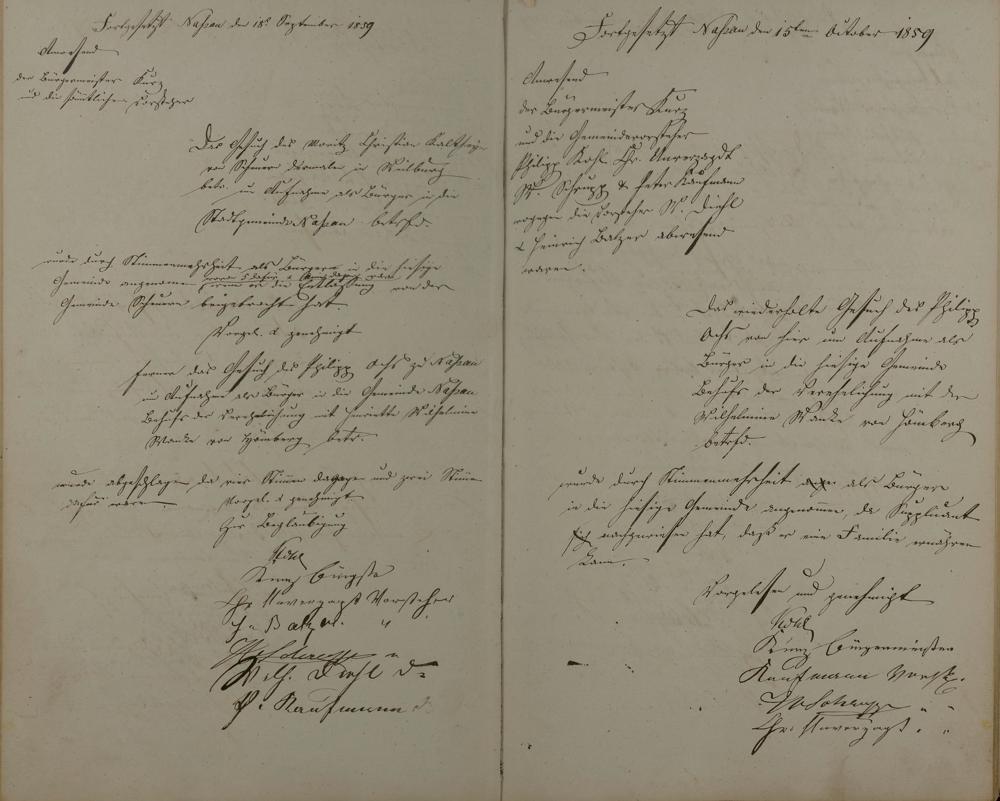 Fortgesetzt Nassau den 18t September 1859
Anwesend
der Bürgermeister Kurz
und die sämtlichen Vorsteher
Das Gesuch des Moritz Christian
von Scheuern dermalen in Weilburg
betr. um Aufnahme als Bürger in die
Stadtgemeinde Nassau betrfd.
wurde durch Stimmenmehrheit als Bürger in die hiesige
Gemeinde angenommen wenn er die Entlassung von der
Gemeinde Scheuern beigebracht hat.
Vorgel. & genehmigt
ferner das Gesuch des Philipp Ochs zu Nassau
um Aufnahme als Bürger in die Gemeinde Nassau
Behufs der Verehelichung mit Henriette Wilhelmine
von Hömberg betr.
wurde abgeschlagen da vier Stimmen dagegen und zwei Stimmen
dafür waren.
Vorgel. & genehmigt
Zur Beglaubigung
Kohl
Kurz Bürgstr
Chr. Unverzagt Vorsteher
H. Balzer "
W Schrupp "
Wilh. Diehl D=
P. Kaufmann d.
Fortgesetzt Nassau den 15ten October 1859
Anwesend
der Bürgermeister Kurz
und die Gemeindevorsteher
Philipp Kohl Chr. Unverzagt
W. Schrupp & Peter Kaufmann
wogegen die Vorsteher W. Diehl
& Heinrich Balzer abwesend
waren.
Das wiederholte Gesuch des Philipp
Ochs von hier um Aufnahme als
Bürger in die hiesige Gemeinde
Behufs der Verehelichung mit der
Wilhelmine von Hömberg
betrfd.
wurde durch Stimmenmehrheit als Bürger
in die hiesige Gemeinde angenommen, da Supplicant
nachgewiesen hat, daß er eine Familie ernähren
kann.
Vorgelesen und genehmigt
Kohl
Kurz Bürgermeister
Kaufmann Vorsth.
W Schrupp " "
Chr. Unverzagt " "